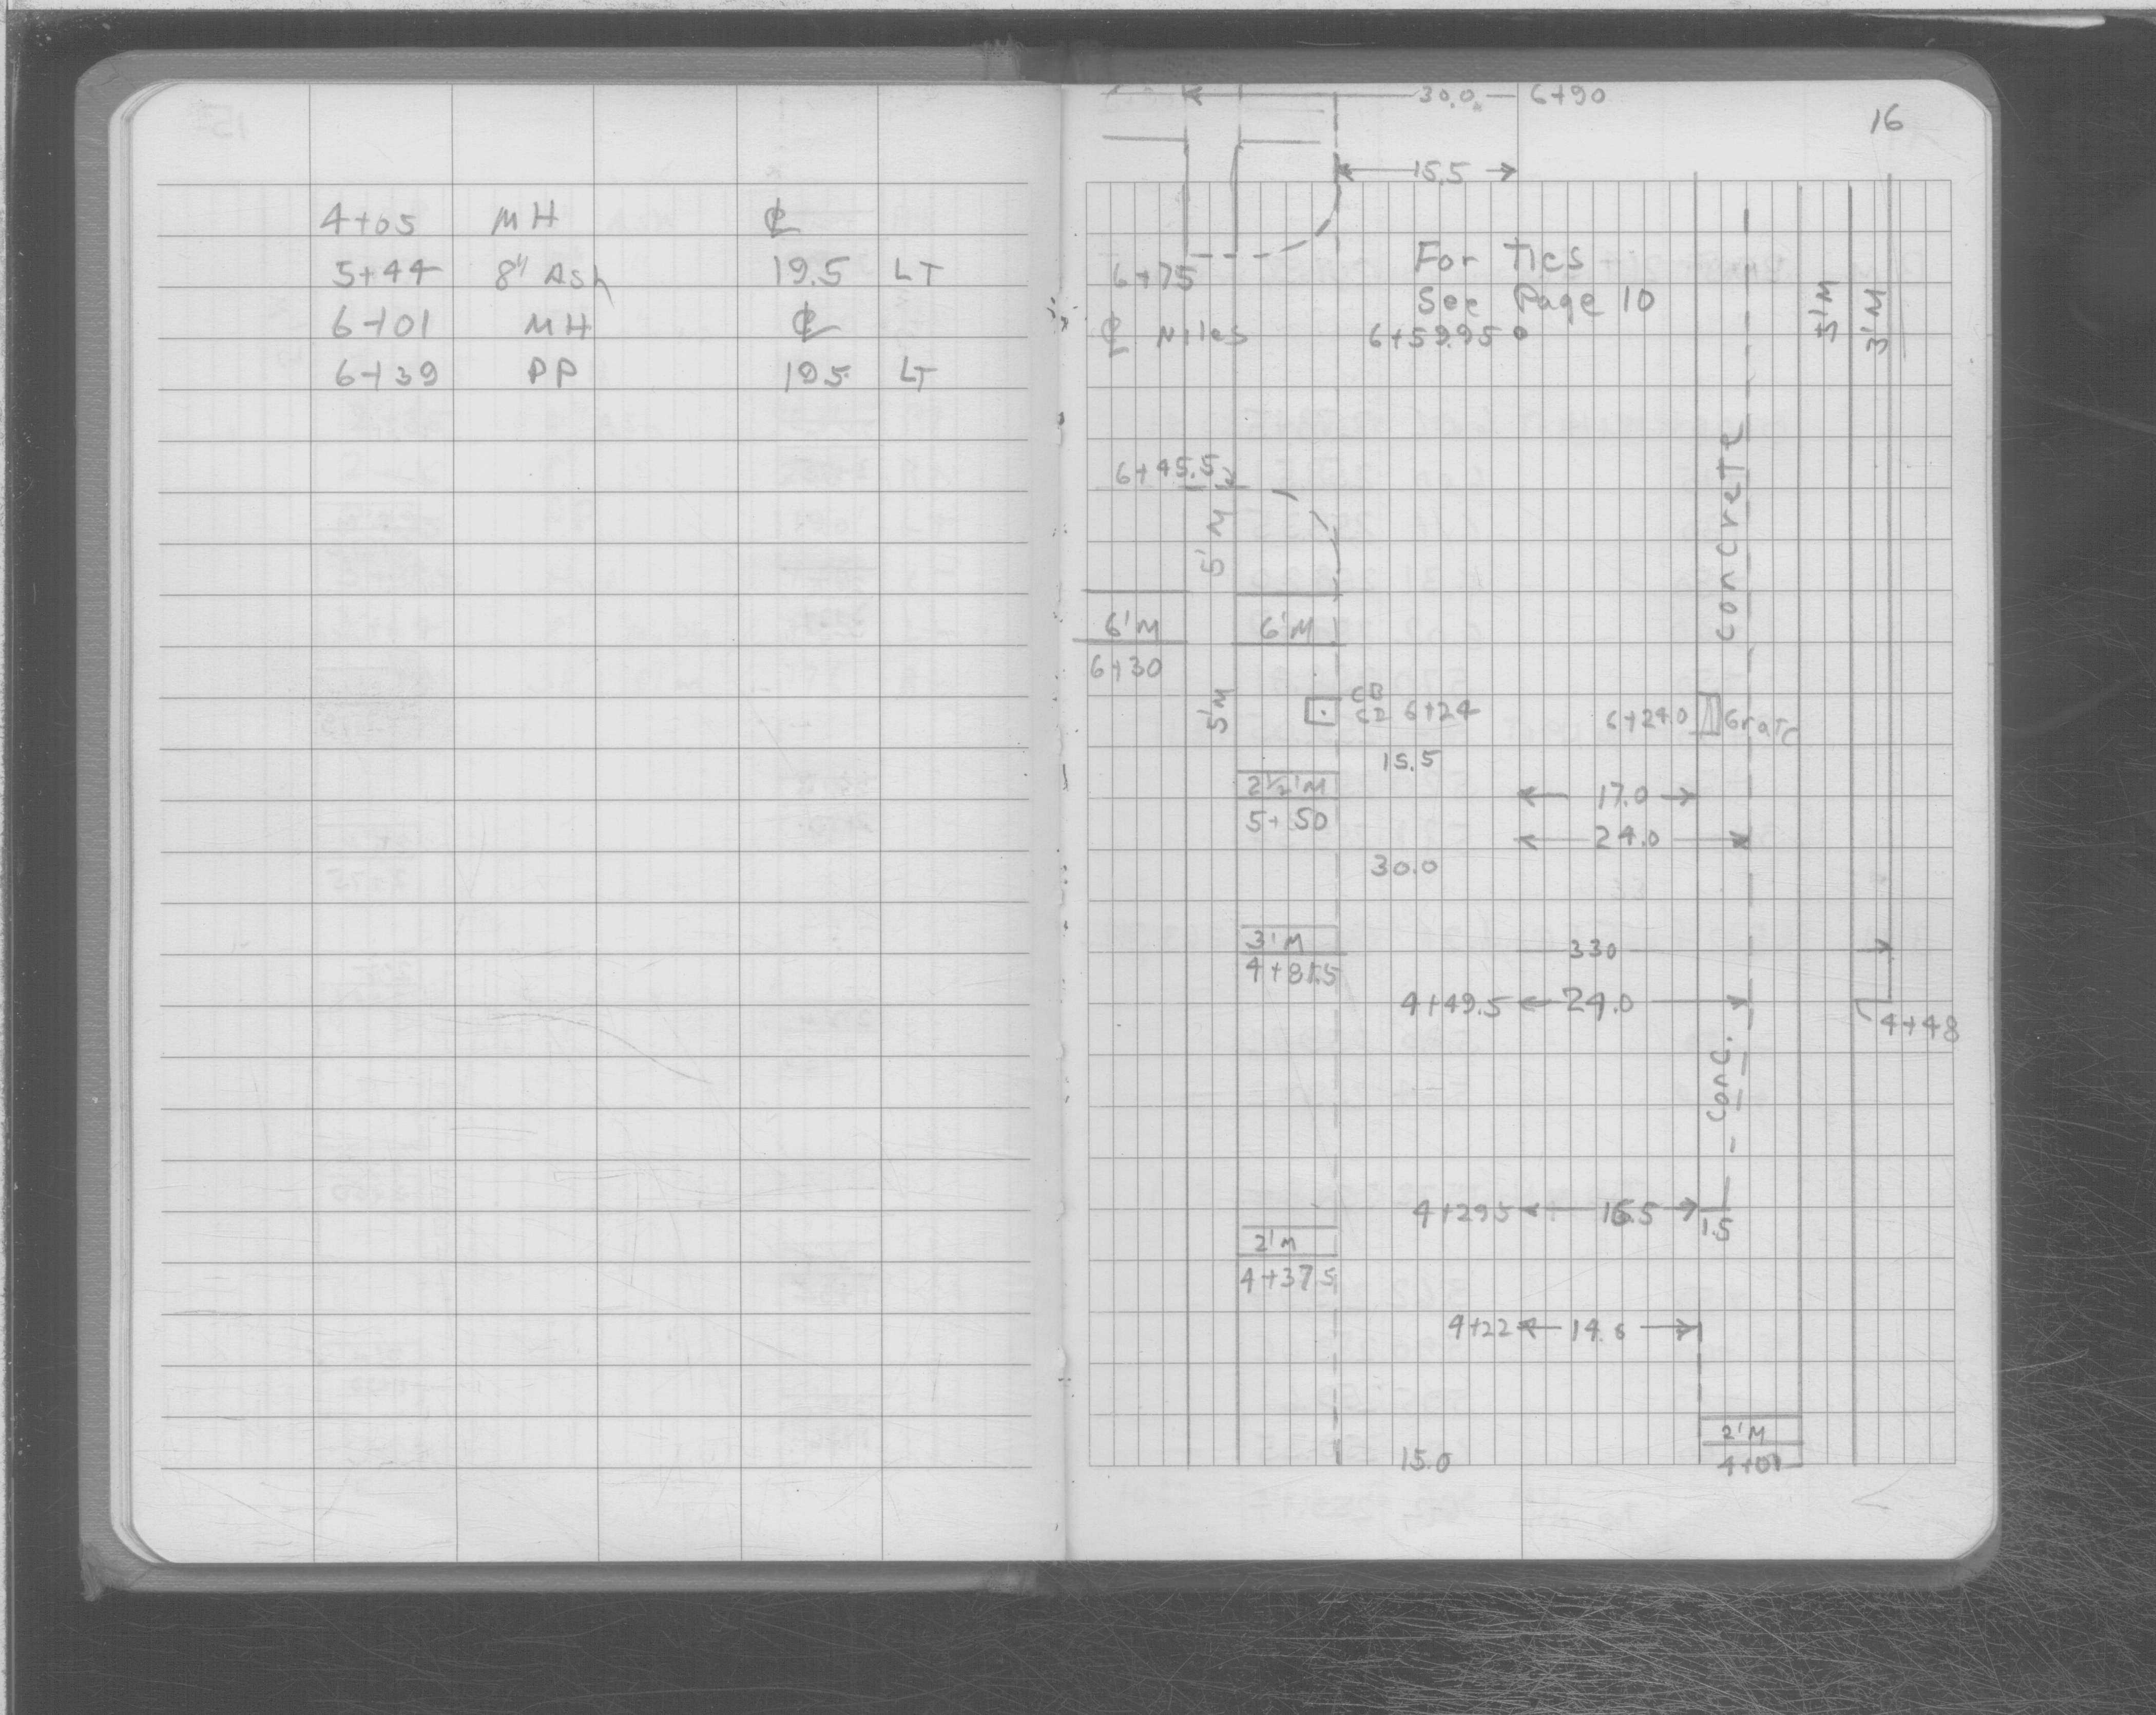 4+05 MH ℄
5+44 8" Ash 19.5 LT
6+01 MH ℄
6+39 PP 19.5 LT
30.0 6+90
16
15.5
For Ties
See Page 10
6+75
℄ Niles 6+59.95
5'M
3'M
6+45.5
5'M
Concrete
6'M 6'M
6+30
5'M
CB
6+24
6+24.0 Grate
15.5
2½'M
17.0
5+50
24.0
30.0
3'M
330
4+81.5
4+49.5 24.0
4+48
Conc.
4+29.5 16.5
1.5
2'M
4+37.5
4+22 14.6
2'M
15.0
4+01